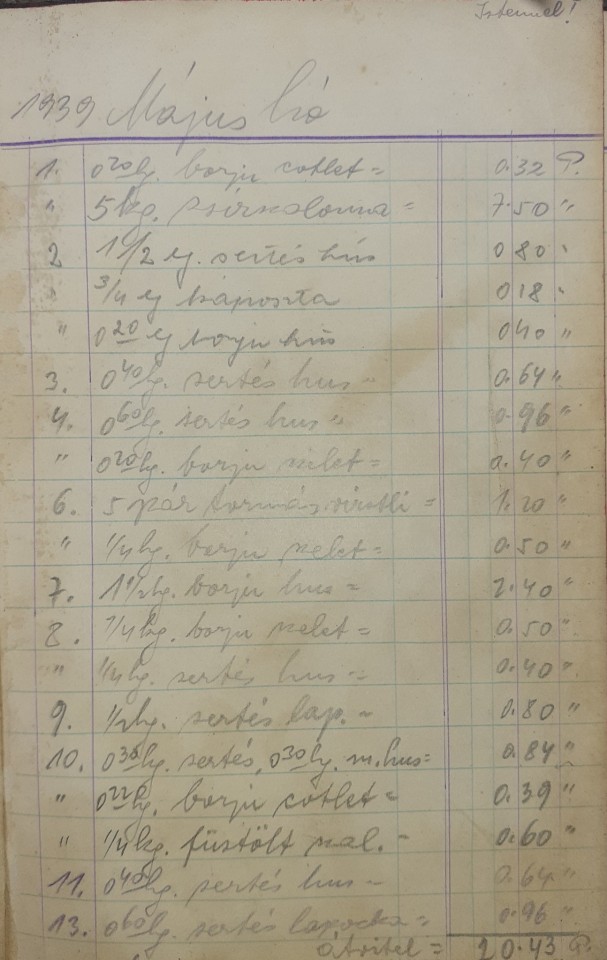 Istennel!
1939 Május hó
1. 0 20 kg. borju cotlet = 0.32 P.
" 5 kg. zsirszalonna = 7.50 "
2 1 1/2 kg. sertés hús 0 80 "
" 3/4 kg káposzta 0 18 "
" 0 20 kg borju hús 0 40 "
3. 0 40 kg. sertés hus = 0.64 "
4. 0 60 kg. sertés hus " 0.96 "
" 0 20 kg. borju szelet = 0.40 "
6. 5 pár tormás virstli = 1.20 "
" 1/4 kg. borju szelet = 0.50 "
7. 1 1/2 kg. borju hus = 2.40 "
8. 1/4 kg. borju szelet = 0.50 "
" 1/4 kg. sertés hus = 0.40 "
9. 1/2 kg. sertés lap. = 0.80 "
10. 0 30 kg. sertés, 0 30 kg. m. hus = 0.84 "
" 0 22 kg. borju cotlet = 0.39 "
" 1/4 kg. füstölt szal. = 0.60 "
11. 0 40 kg. sertés hus = 0.64 "
13. 0 60 kg. sertés lapocka = 0.96 "
átvitel = 20.43 P.